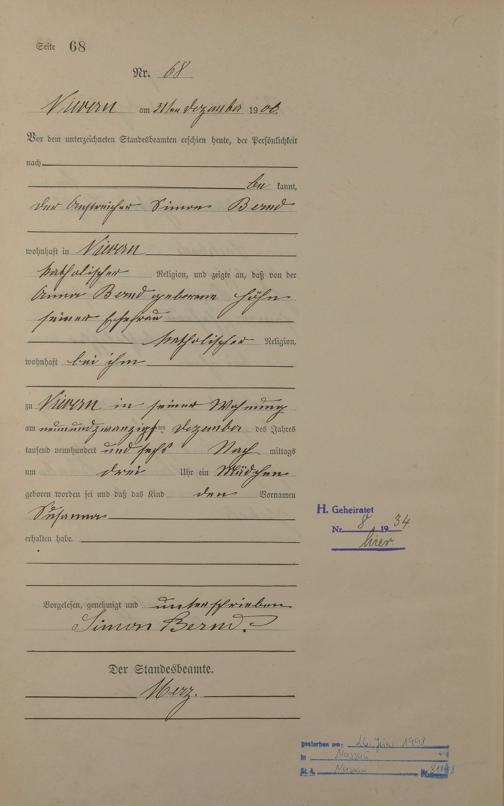 Seite 68
Nr. 68
Nievern am 31ten Dezember 1906
Vor dem unterzeichneten Standesbeamten erschien heute, der Persönlichkeit
nach
be kannt,
der Anstreicher Simon Bernd
wohnhaft in Nievern
katholischer Religion, und zeigte an, daß von der
Anna Bernd geborene Höhn
seiner Ehefrau
katholischer Religion,
wohnhaft bei ihm
zu Nievern in seiner Wohnung
am neunundzwanzigsten Dezember des Jahres
tausend neunhundert und sechs Nach mittags
um drei Uhr ein Mädchen
geboren worden sei und daß das Kind den Vornamen
Susanna
erhalten habe.
Vorgelesen, genehmigt und unterschrieben
Simon Bernd.
Der Standesbeamte.
Merz.
H. Geheiratet
Nr. 8 1934
hier
gestorben am: 26. Juni 1998
in Nassau
St. A. Nassau Nr.